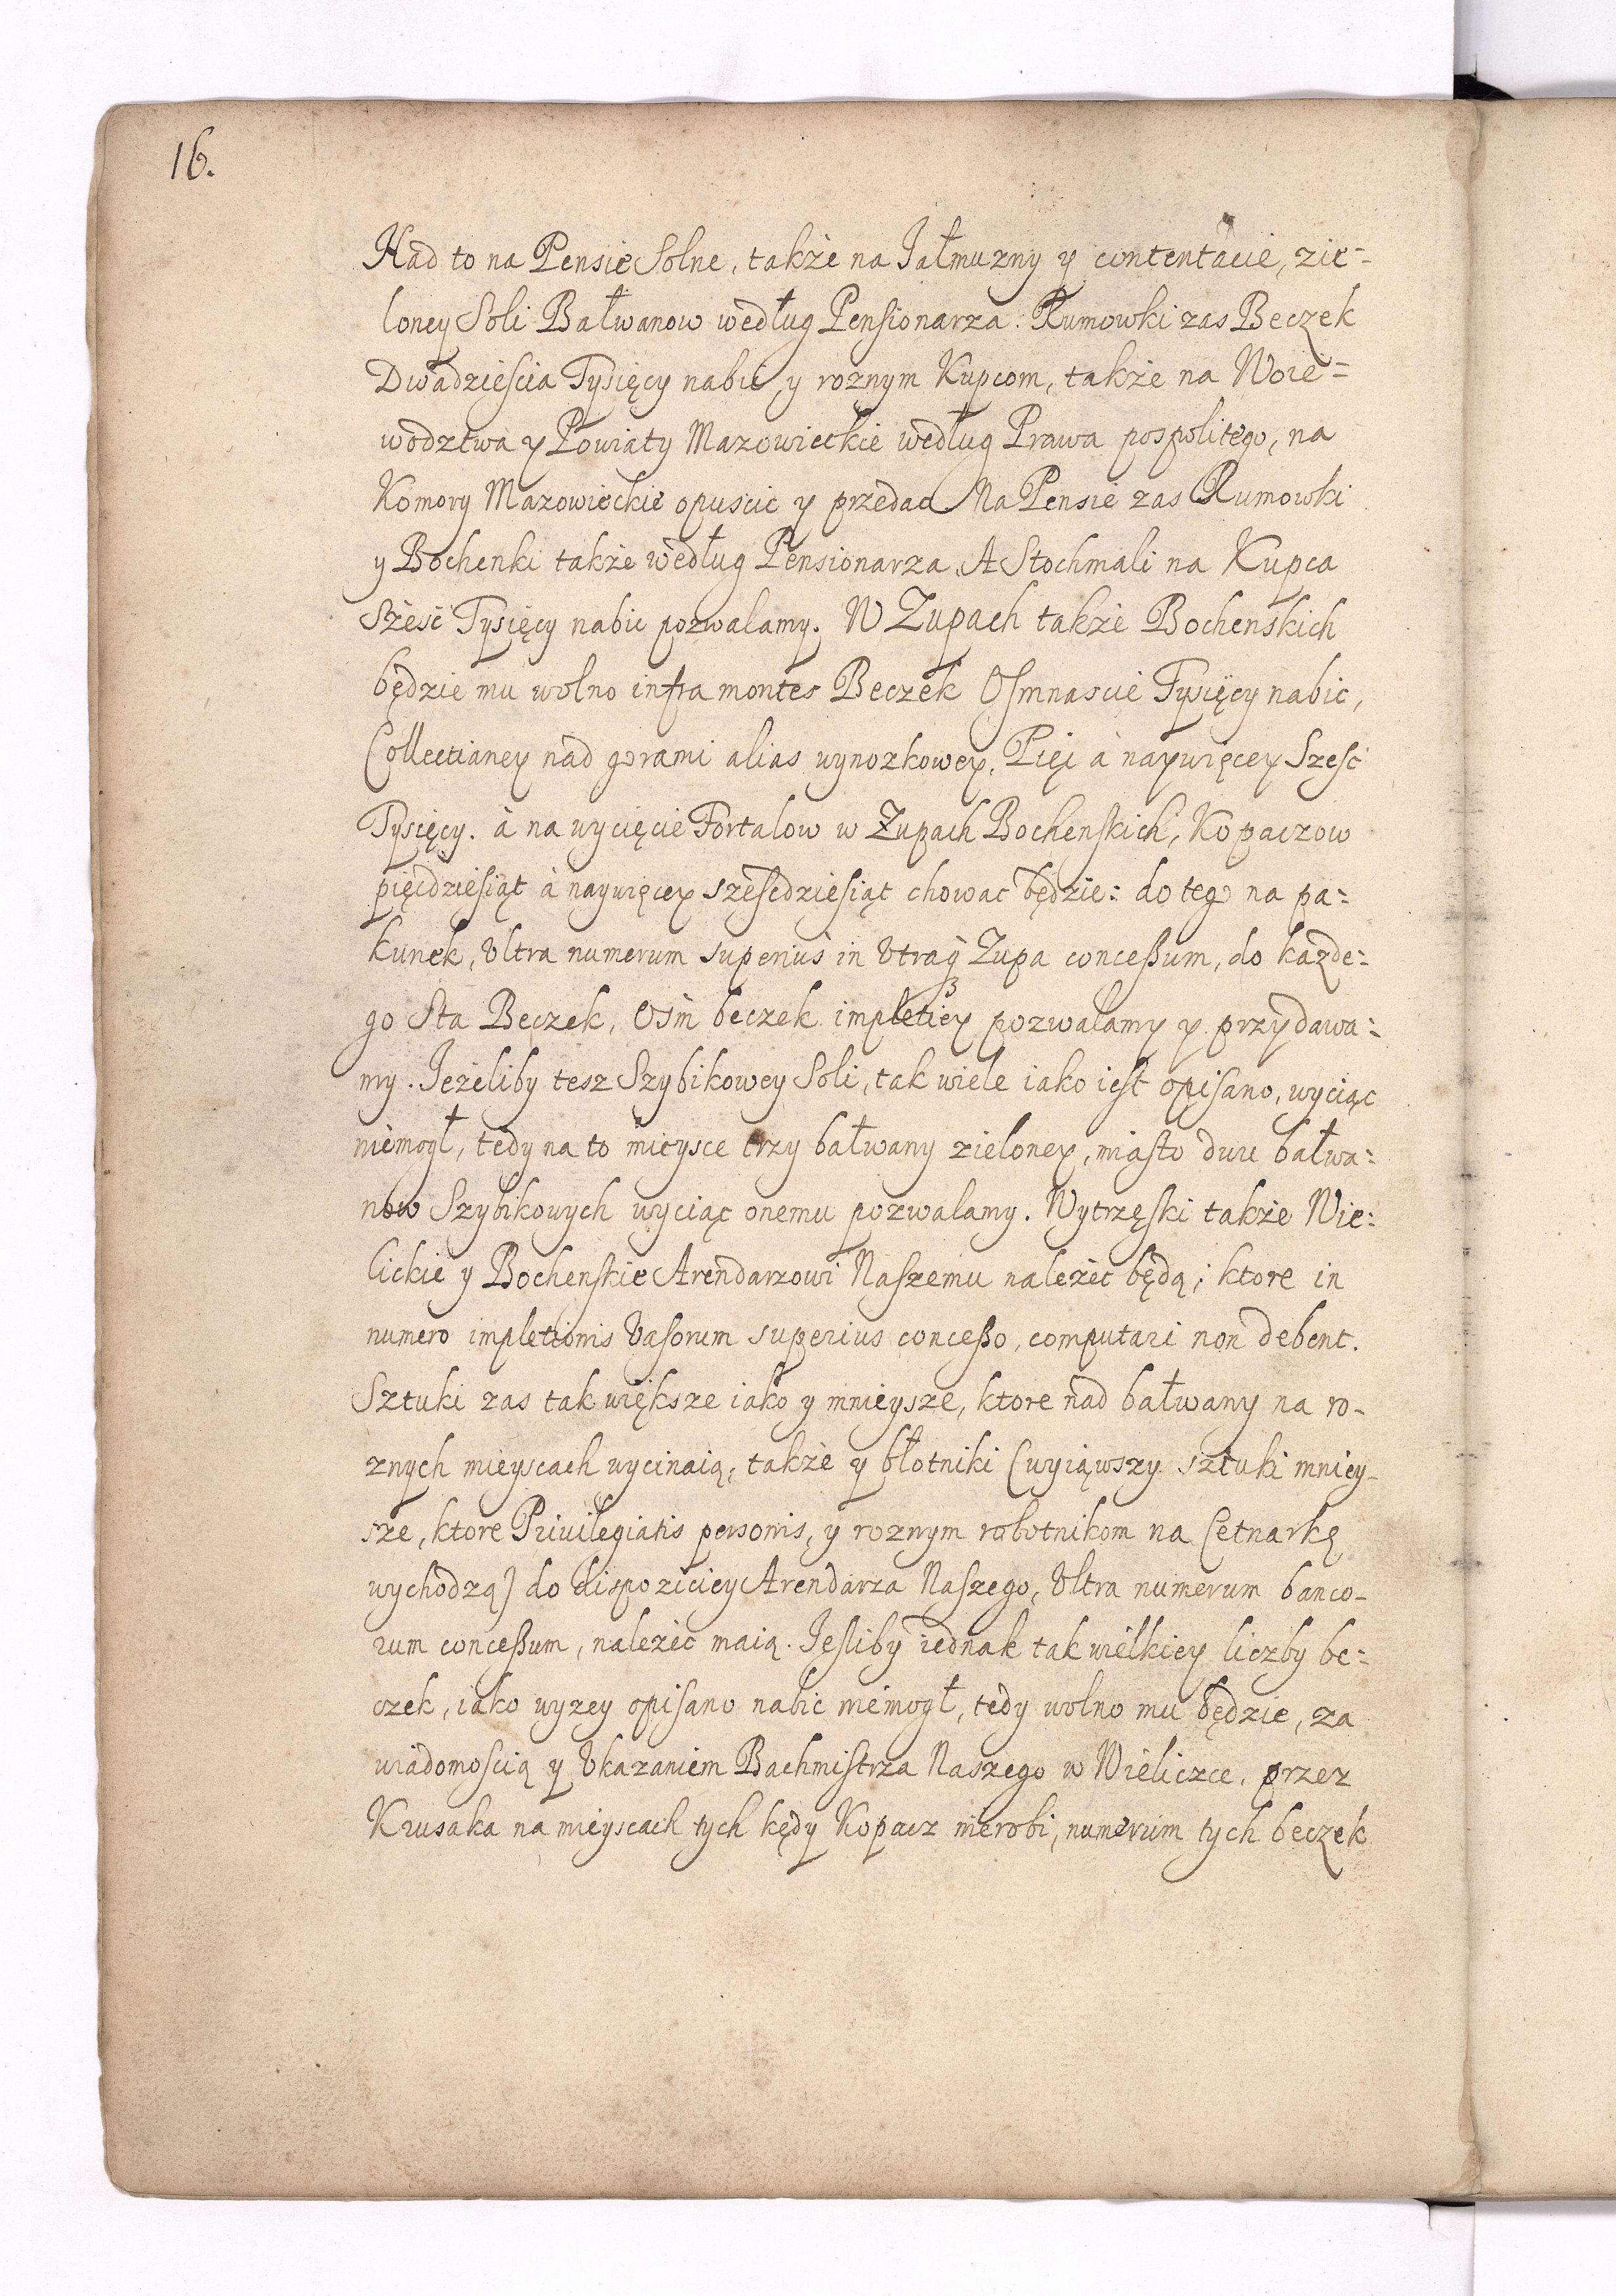 16.
Nad to na Pensie Solne, także na Jałmuzny y contentacie, zie=
loney Soli Bałwanow według Pensionarza. Rumowki zas Beczek
Dwadziescia Tysięcy nabic y roznym Kupcom, także na Woie=
wodztwa y Powiaty Mazowieckie według Prawa pospolitego, na
Komory Mazowieckie opuscic y przedac Na Pensie zas Rumowki
y Bochenki także według Pensionarza A Stochmali na Kupca
Szesć Tysięcy nabic pozwalamy. W Zupach także Bochenskich
będzie mu wolno infra montes Beczek Osmnascie Tysięcy nabic,
Collectianey nad gorami alias wynozkowey, Pięć à naywięcey Szesć
Tysięcy. à na wycięcie Fortalow w Zupach Bochenskich, Kopaczow
pięcdziesiąt à naywięcey szescdziesiąt chowac będzie: do tego na pa=
kunek, Vltra numerum superiùs in Vtraq̃ Zupa conceßum, do kazde=
go Sta Beczek, Osm̃ beczek impletiey pozwalamy y przydawa=
my. Jeżeliby tesz Szybikowey Soli, tak wiele iako iest opisano, wyciąc
niemogł, tedy na to mieysce trzy bałwany zieloney, miasto dwu bałwa=
now Szybikowych wyciąc onemu pozwalamy. Wytrzęski także Wie=
lickie y Bochenskie Arendarzowi Naszemu należec będą; ktore in
numero impletionis Vasorum superius conceßo, computari non debent.
Sztuki zas tak większe iako y mnieysze, ktore nad bałwany na ro-
znych mieyscach wycinaią, także y błotniki (wyiąwszy sztuki mniey-
sze, ktore Priuilegiatis personis, y roznym robotnikom na Cetnarkę
wychodzą) do dispoziciey Arendarza Naszego, Vltra numerum banco-
rum conceßum, należec maią. Jesliby iednak tak wielkiey liczby be=
czek, iako wyzey opisano nabic niemogł, tedy wolno mu będzie, za
wiadomoscią y Vkazaniem Bachmistrza Naszego w Wieliczce, przez
Krusaka na mieyscach tych kędy Kopacz nierobi, numerum tych beczek